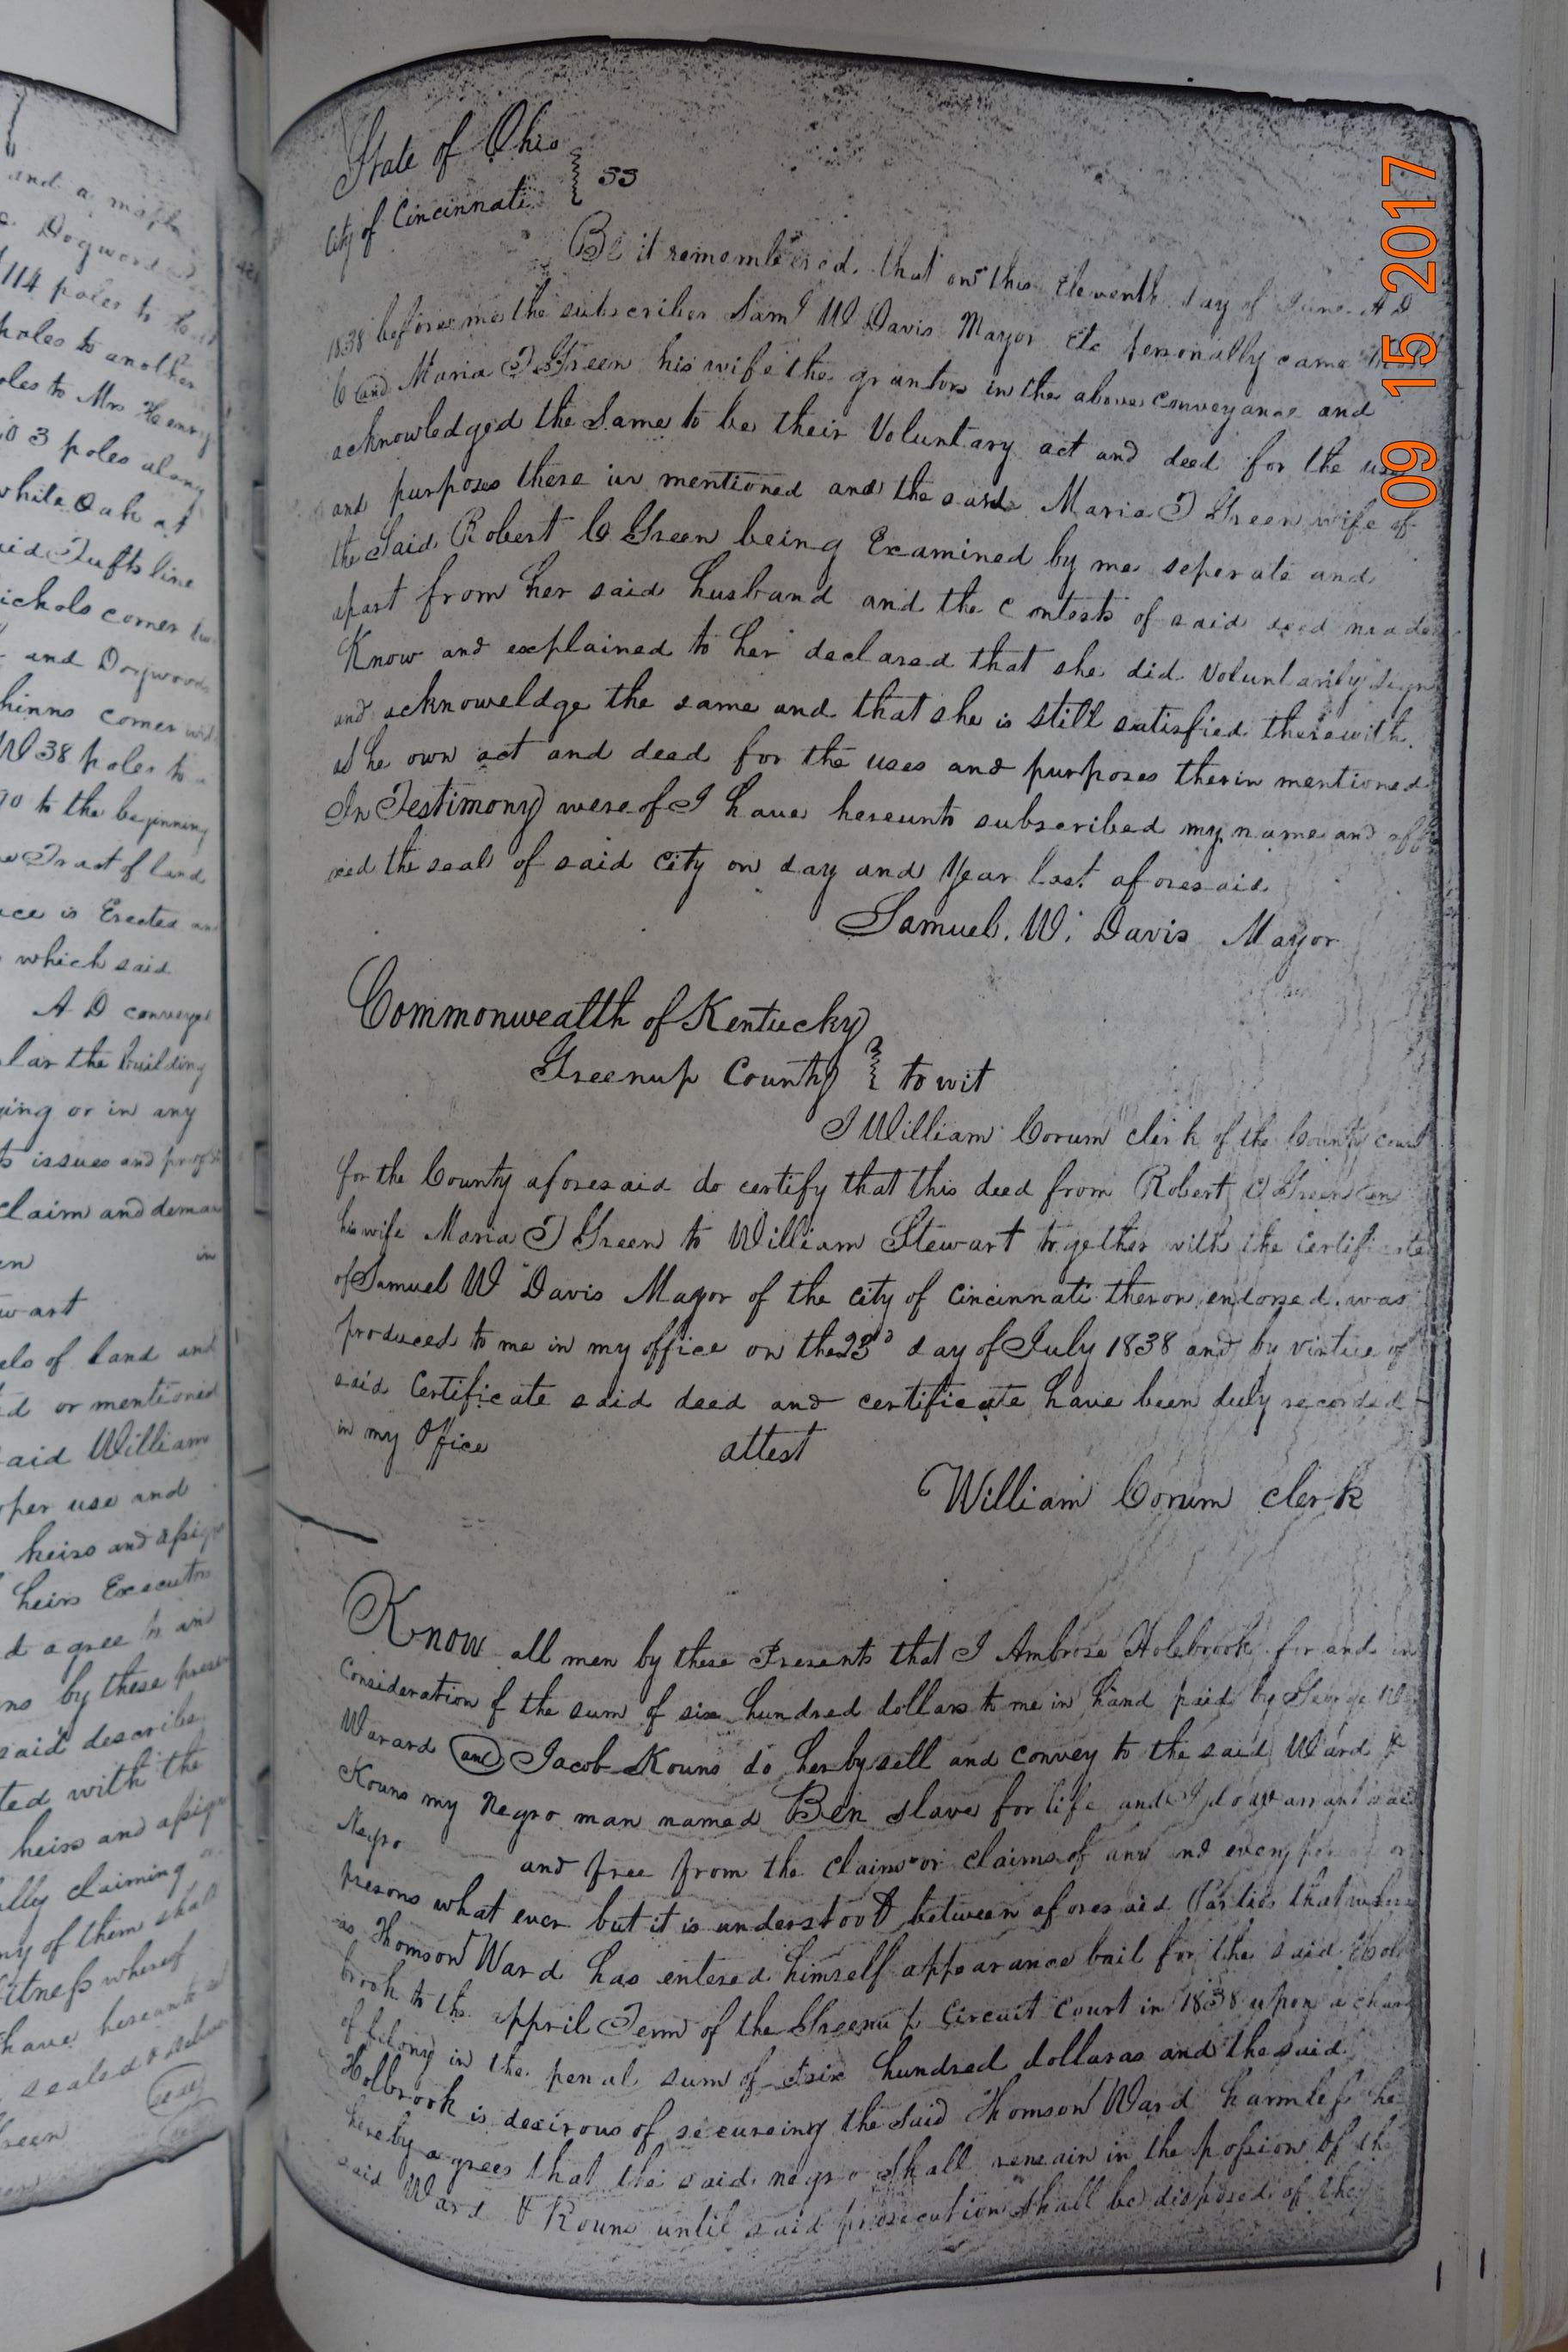 and a maple
Dogwood
114 poles to
poles to another
poles to Mrs Henry
3 poles along
white Oak at
said Tufts line
ickols corner
and Dogwoods
hinns corner
W 38 poles to
90 to the beginning
Tract of land
ace is Erected
which said
A D conveyed
lar the building
ging or in any
issues and profits
claim and deman
in
wart
els of land and
d or mentioned
said William
oper use and
heirs and assigns
heirs Executors
d agree to and
by these presen
said describe
ted with the
heirs and assigns
ally claiming
ny of them shall
itness whereof
have hereunto
sealed &
seal
reen
State of Ohio
City of Cincinnati } SS
Be it remembered that on this Eleventh day of June A D
1838 before me the subscriber Saml W Davis Mayor Etc personally came
C and Maria T Green his wife the grantors in the above conveyance and
acknowledged the Same to be their Voluntary act and deed for the uses
and purposes there in mentioned and the said Maria T Green wife of
the Said Robert C Green being Examined by me seperate and
apart from her said husband and the contests of said deed made
Know and explained to her declared that she did Voluntarily sign
and acknoweldge the same and that she is still satisfied therewith
as he own act and deed for the uses and purposes therin mentioned
In Testimony were of I have hereunto subscribed my name and aff
ixed the seal of said City on day and Year last aforesaid
Samuel. W. Davis Mayor
Commonwealth of Kentucky
Greenup County } to wit
I William Corum clerk of the County court
for the County aforesaid do certify that this deed from Robert C Green and
his wife Maria T Green to William Stewart together with the certificate
of Samuel W Davis Mayor of the city of Cincinnati theron endorsed was
produced to me in my office on the 23d day of July 1838 and by virtue of
said Certificate said deed and certificate have been duly recorded
in my Office attest
William Corum clerk
Know all men by these Presents that I Ambrose Holebrook for and in
Consideration of the sum of six hundred dollars to me in hand paid by George W
Warard and Jacob Kouns do herby sell and convey to the said Ward &
Kouns my Negro man named Ben slave for life and I do warrant said
Negro and free from the claim or claims of any and every person or
presons what ever but it is understood between aforesaid Parties that where
as Thomson Ward has entered himself appearance bail for the said Hol
brook to the appril Term of the Greenup Circuit Court in 1838 upon a charge
of felony in the penal sum of six hundred dollaras and the said
Holbrook is desirous of secureing the Said Thomson Ward harmless he
hereby agrees that the said negro shall remain in the possion of the
said Ward & Kouns until said prosecution shall be disposed of they
09 15 2017